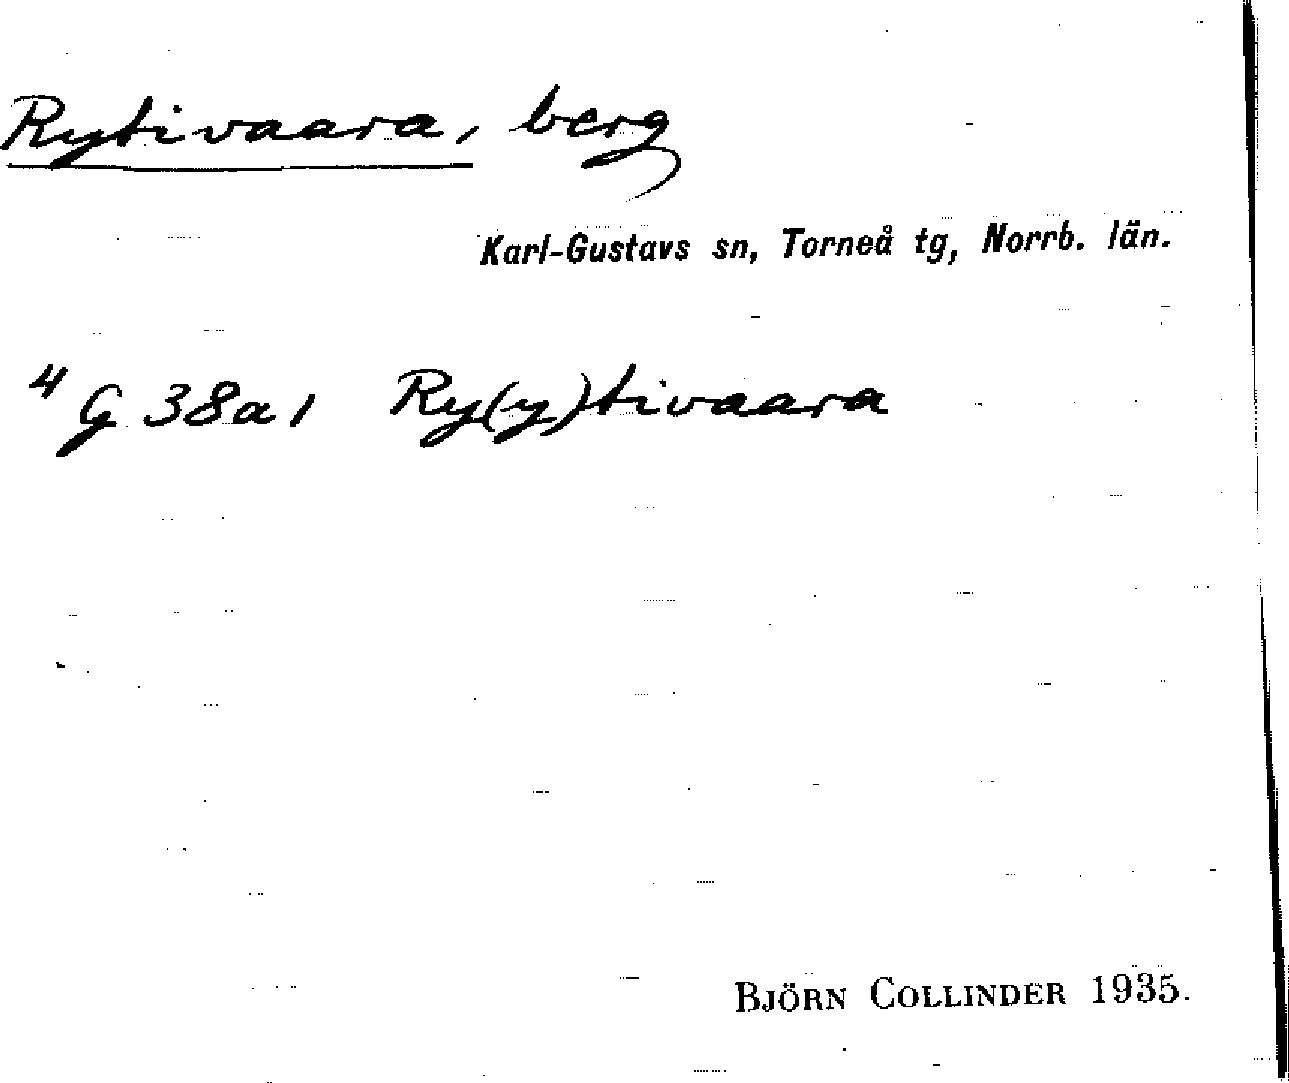 Rytivaara, berg
Karl-Gustavs sn, Torneå tg, Norrb. län.
4 G 38a1 Ry(y)tivaara
BJÖRN COLLINDER 1935.